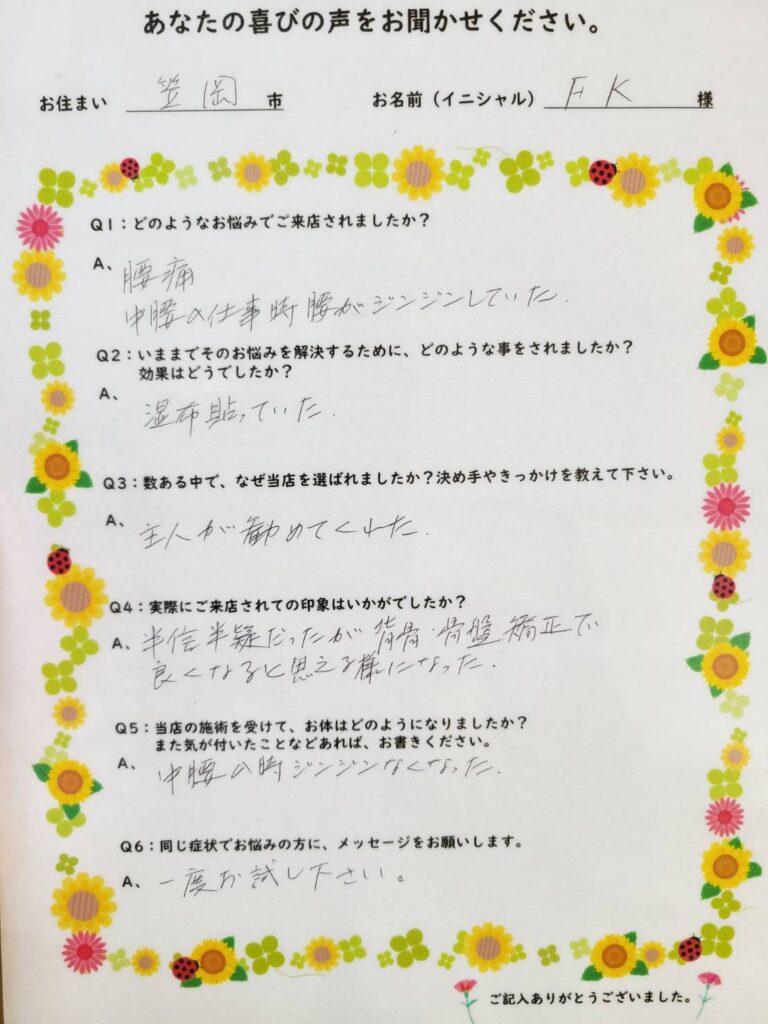 あなたの喜びの声をお聞かせください。
お住まい 笠岡 市 お名前（イニシャル） F K 様
Q1：どのようなお悩みでご来店されましたか？
A、腰痛
中腰の仕事時腰がジンジンしていた.
Q2：いままでそのお悩みを解決するために、どのような事をされましたか？
効果はどうでしたか？
A、湿布貼っていた.
Q3：数ある中で、なぜ当店を選ばれましたか？決め手やきっかけを教えて下さい。
A、主人が勧めてくれた.
Q4：実際にご来店されての印象はいかがでしたか？
A、半信半疑だったが背骨・骨盤矯正で
良くなると思える様になった.
Q5：当店の施術を受けて、お体はどのようになりましたか？
また気が付いたことなどあれば、お書きください。
A、中腰の時ジンジンなくなった.
Q6：同じ症状でお悩みの方に、メッセージをお願いします。
A、一度お試し下さい。
ご記入ありがとうございました。